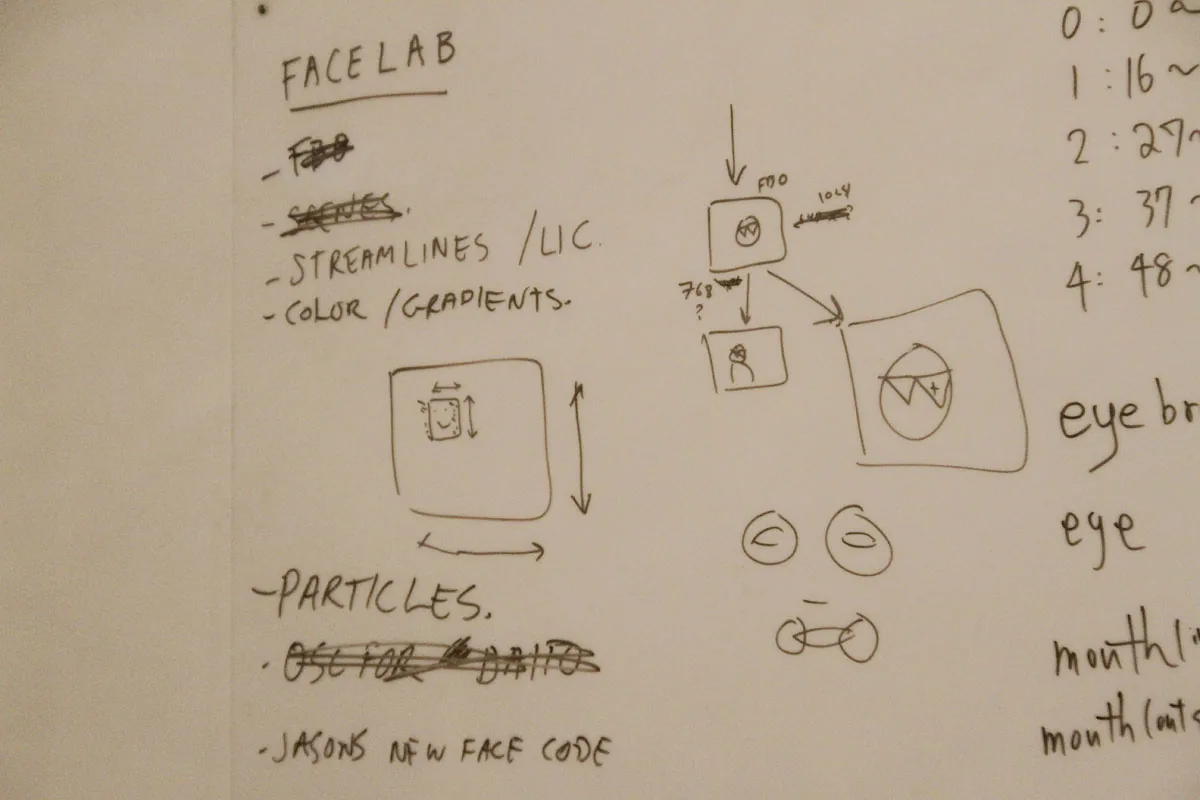 FACELAB
- FBO
- SCENES.
- STREAMLINES /LIC.
- COLOR /GRADIENTS.
- PARTICLES.
- OSC FOR DAITO
- JASONS NEW FACE CODE
FBO
1024
768
?
0: 0~
1:16~
2:27~
3: 37~
4: 48~
eye br
eye
mouth(i
mouth(out